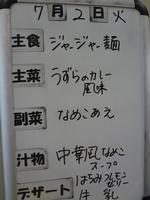 7月2日火
主食 ジャージャー麺
主菜 うずらのカレー
風味
副菜 なめこあえ
汁物 中華風なめこ
スープ
デザート はちみつレモン
ゼリー
牛乳